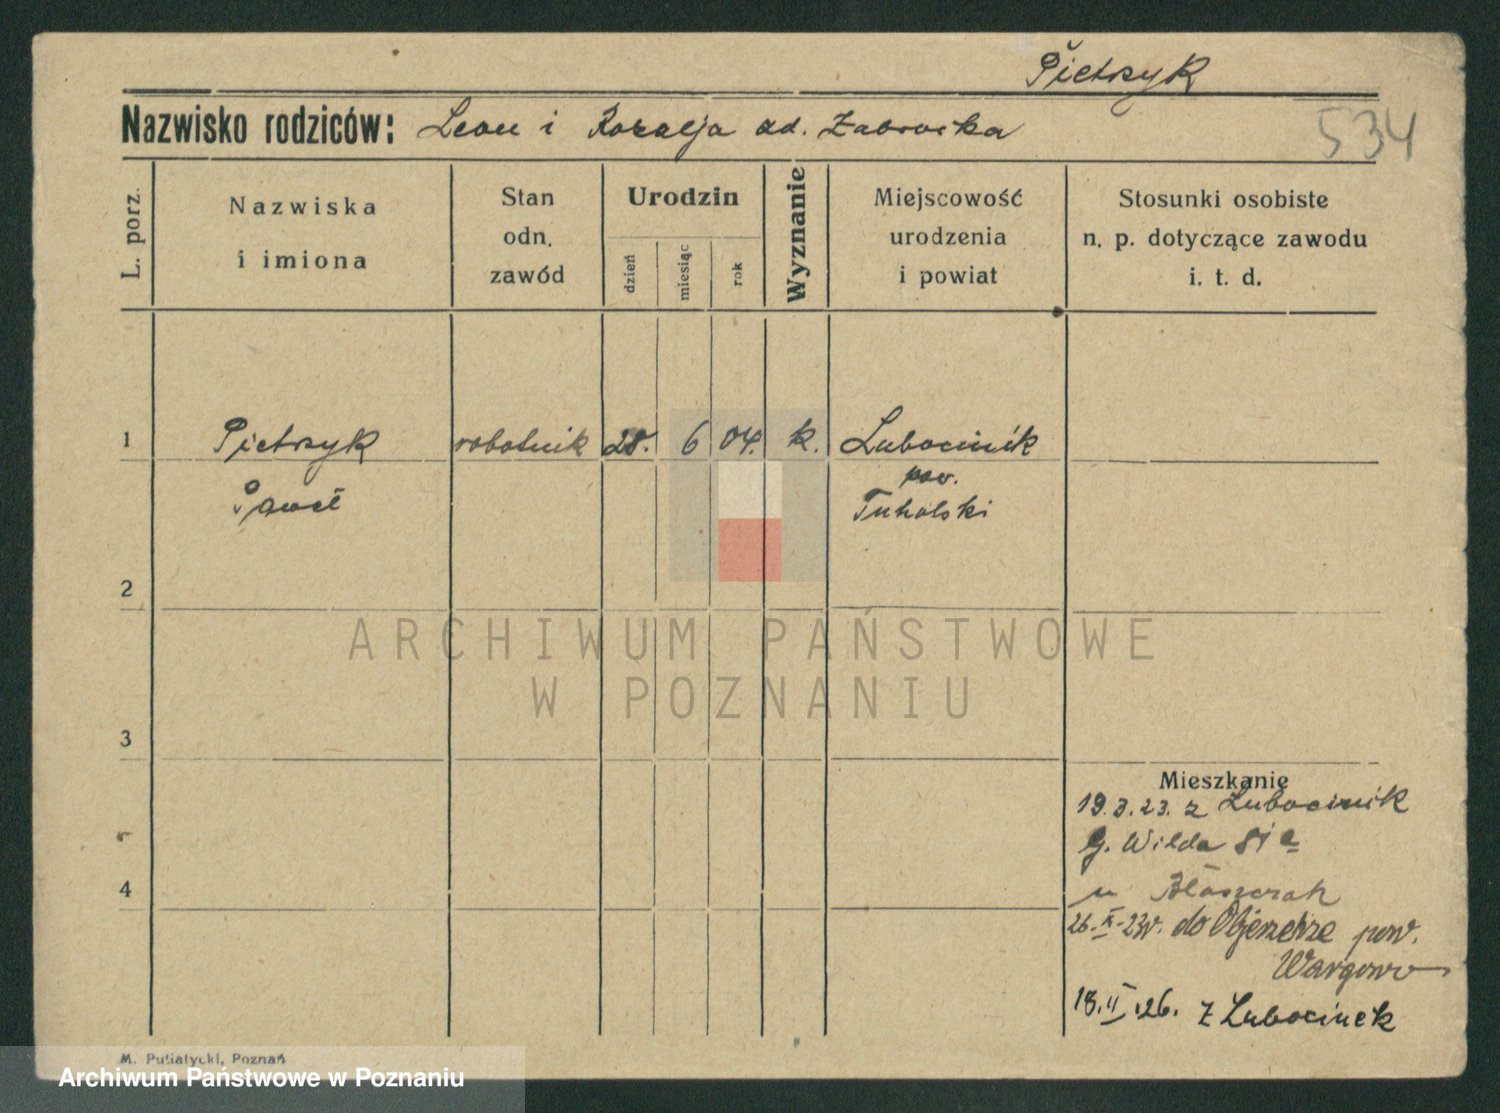 Pietrzyk
Nazwisko rodziców: Leon i Rozalja zd. Zabrocka
534
L. porz.
Nazwiska
i imiona
Stan
odn.
zawód
Urodzin
dzień
miesiąc
rok
Wyznanie
Miejscowość
urodzenia
i powiat
Stosunki osobiste
n. p. dotyczące zawodu
i. t. d.
1 Pietrzyk robotnik 28. 6 04. k. Lubocinik
pow.
Paweł Tuholski
2
ARCHIWUM PAŃSTWOWE
W POZNANIU
3
Mieszkanie
19.3.23. z Lubocinik
G. Wilda 81a
4
u
26.X.23r. do Objezierze pow.
Wargowo
18.II.26. z Lubocinek
M. Putiatycki, Poznań
Archiwum Państwowe w Poznaniu